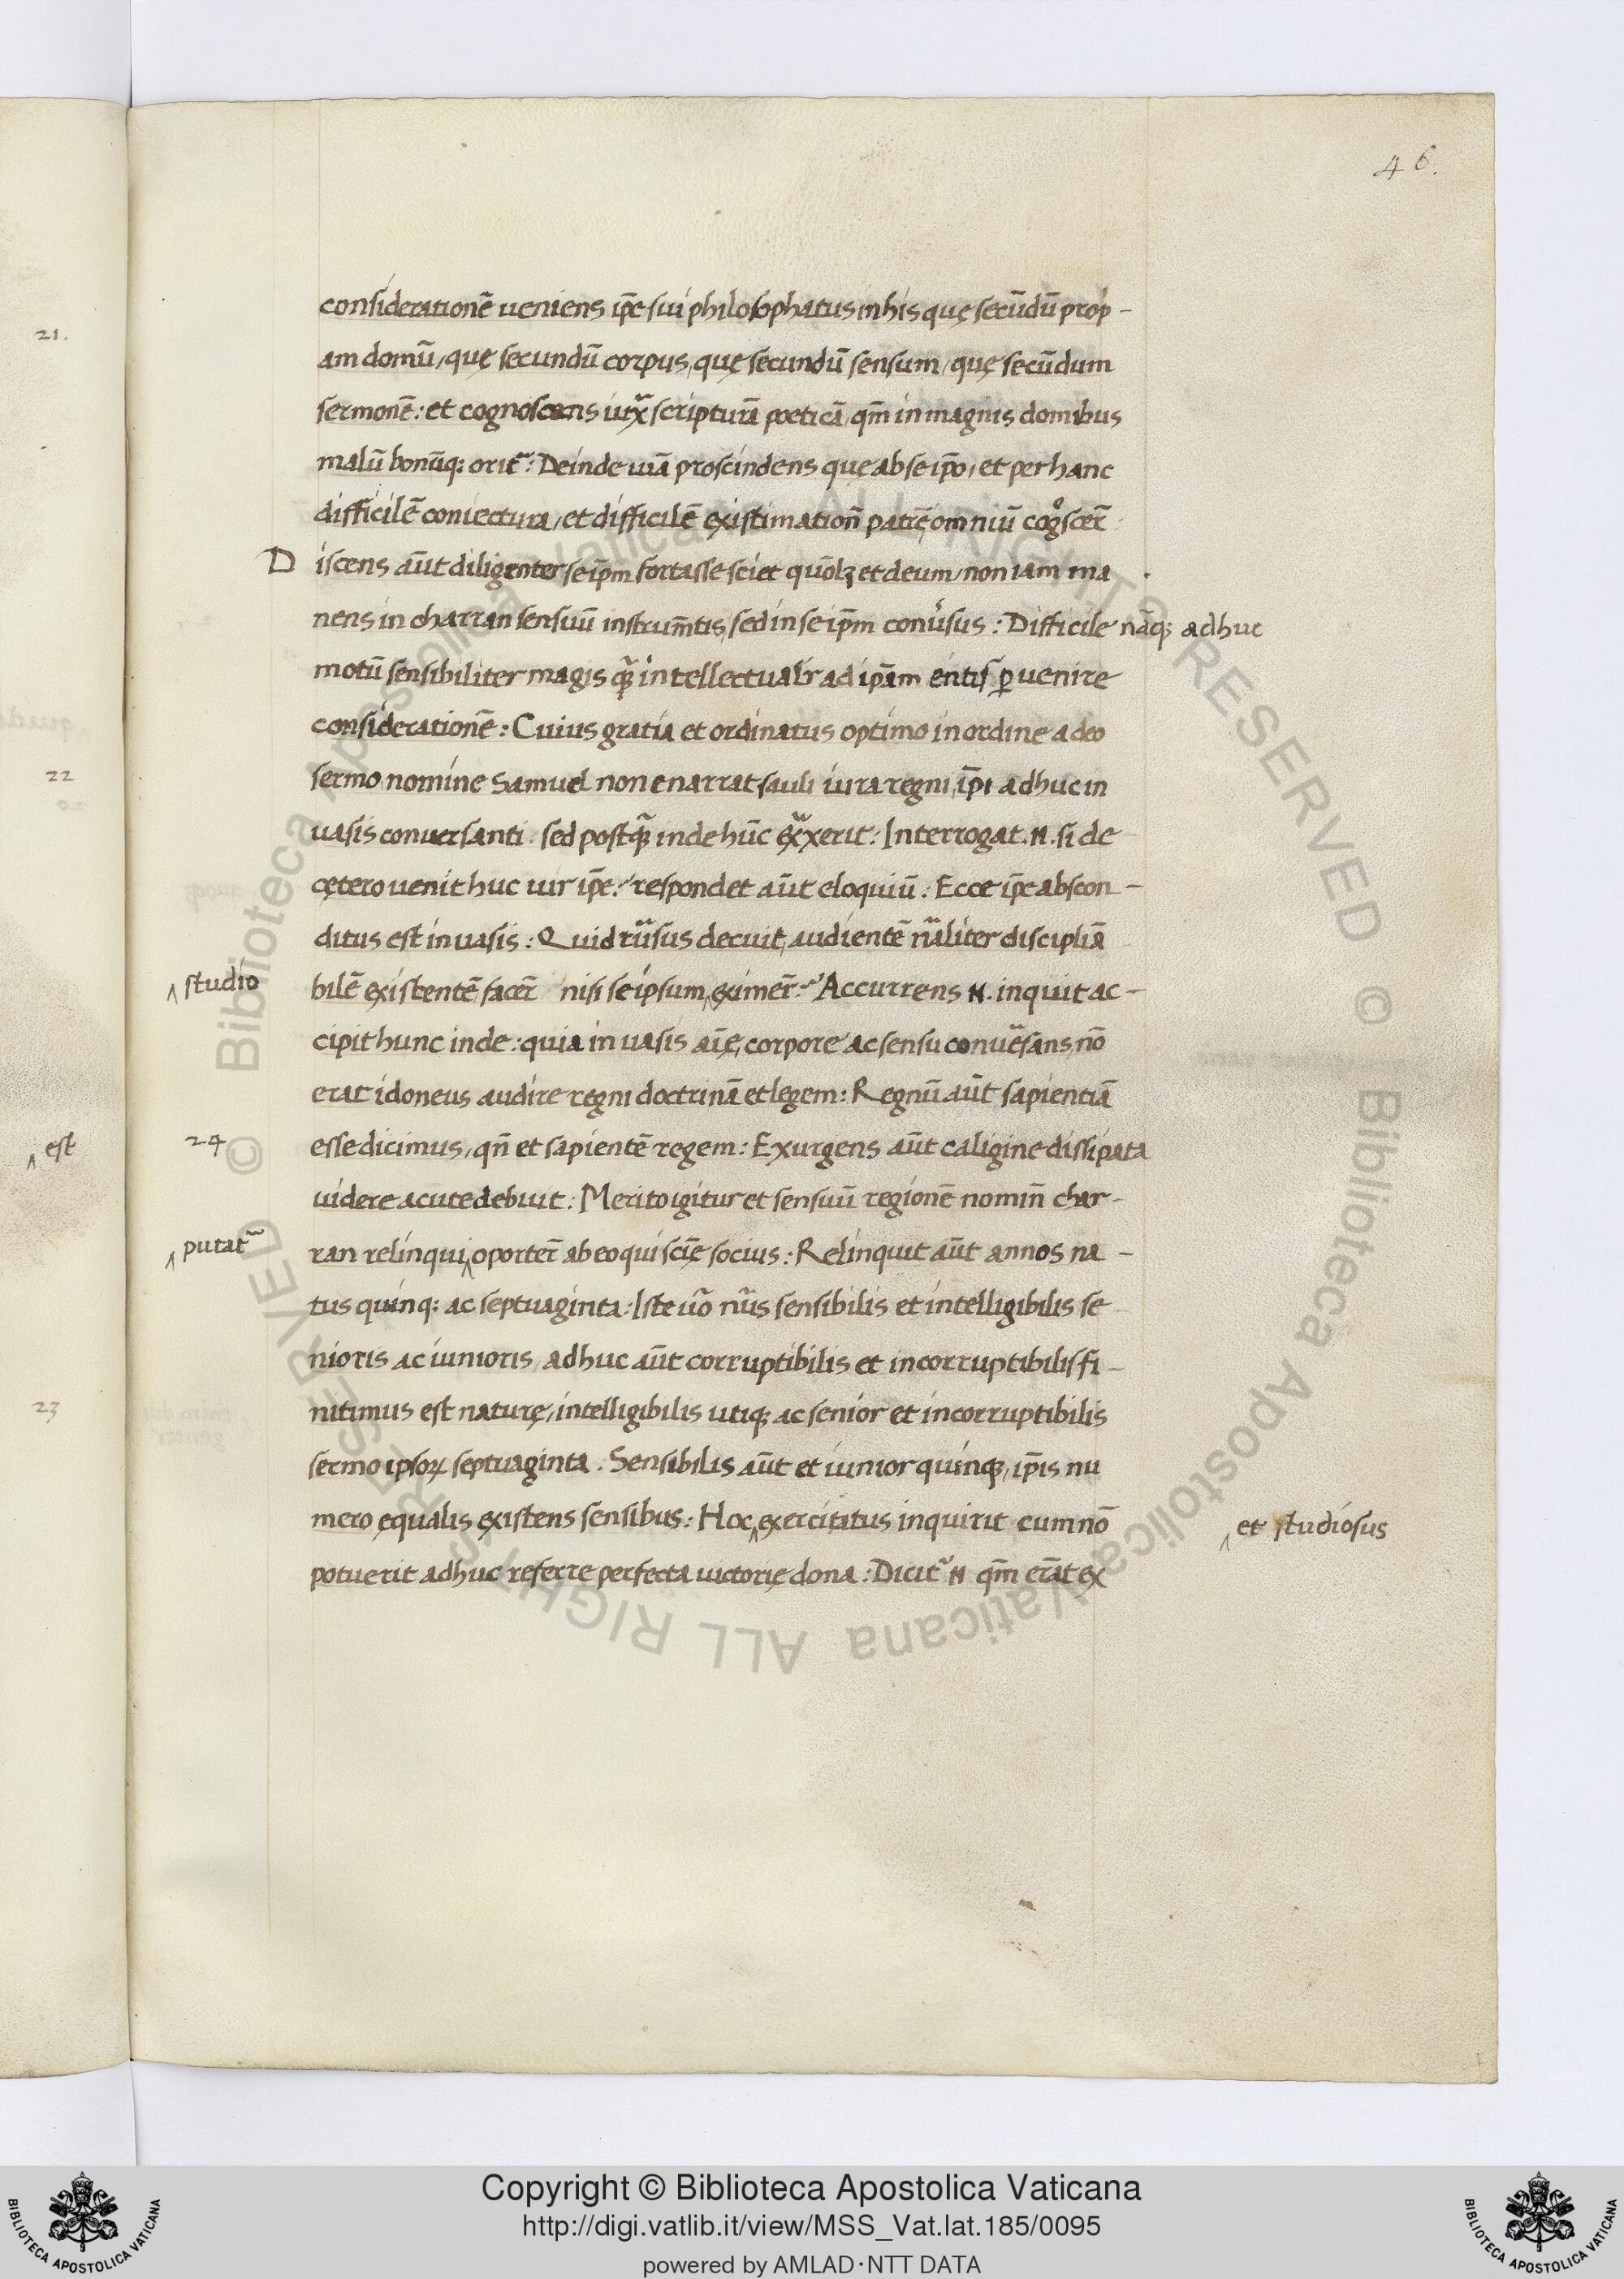 46.
21.
consideratione᷉ ueniens ip̄e sui philosophatus in his quę secūdū prop-
am domū, quę secundū corpus, quę secundū sensum, quę secūdum
sermonē: et cognoscens scripturā poeticā, qm̄ in magnis domibus
malū bonūq; orit᷉: Deinde uiā proscindens quę ab se ip̄o, et per hanc
difficilē coniectura, et difficilē existimation̄ patrē omniū cogͦscer̄
Discens aūt diligenter se ip̄m fortasse sciet quōlꝫ et deum, non iam ma
nens in charran sensuū instrum̄tis, sed in se ip̄m conu̓sus: Difficile nāq; adhuc
motū sensibiliter magis qᷓ intellectualr̄ ad ip̄am entis ꝑuenire
considerationē: Cuius gratia et ordinatus optimo in ordine a deo
22
sermo nomine Samuel non enarrat sauli iura regni, ip̄i adhuc in
uasis conuersanti sed postqᷓ inde hūc exᷓxerit: Interrogat .N. si de
cętero uenit huc uir ip̄e: respondet aūt eloquiū: Ecce ip̄e abscon-
ditus est in uasis: Quid rūsus decuit, audientē nāliter discipliā
studio
bilē existentē facer̄ nisi se ipsum eximer̄: Accurrens N. inquit ac-
cipit hunc inde: quia in uasis aīę, corpore ac sensu conuēsans, nō
erat idoneus audire regni doctrinā et legem: Regnū aūt sapientiā
est
24
esse dicimus, qn̄ et sapientē regem: Exurgens aūt caligine dissipata
uidere acute debuit: Merito igitur et sensuū regionē nomin̄ char-
putat᷉
ran relinqui oporter̄ ab eo qui scīę socius: Relinquit aūt annos na-
tus quinq; ac septuaginta: Iste uō nūs sensibilis et intelligibilis se
nioris ac iunioris, adhuc aūt corruptibilis et incorruptibilis fi-
23
nitimus est naturę, intelligibilis utiq; ac senior et incorruptibilis
sermo ipsoꝝ septuaginta. Sensibilis aūt et iunior quinq;, ip̄is nu
mero ęqualis existens sensibus: Hoc exercitatus inquirit cum nō
et studiosus
potuerit adhuc referre perfecta uictorię dona: Dicit᷉ N qm̄ erāt ex
© Biblioteca Apostolica Vaticana ALL RIGHTS RESERVED © Biblioteca Apostolica Vaticana ALL RIGHTS RESERVED
BIBLIOTECA APOSTOLICA VATICANA
Copyright © Biblioteca Apostolica Vaticana
http://digi.vatlib.it/view/MSS_Vat.lat.185/0095
powered by AMLAD·NTT DATA
BIBLIOTECA APOSTOLICA VATICANA